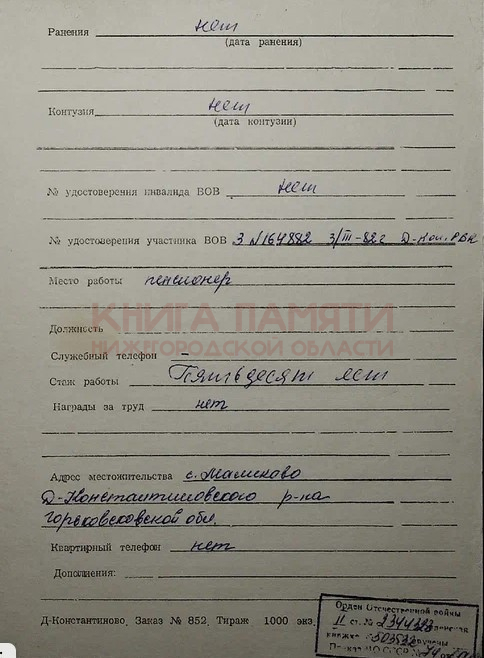 Ранения нет
(дата ранения)
Контузия нет
(дата контузии)
№ удостоверения инвалида ВОВ нет
№ удостоверения участника ВОВ 3 №164882 3/III-82г Д-Кон. РВК
Место работы пенсионер
КНИГА ПАМЯТИ
Должность
НИЖЕГОРОДСКОЙ ОБЛАСТИ
Служебный телефон –
Стаж работы Пятьдесят лет
Награды за труд нет
Адрес местожительства с.
Д-Константиновского р-на
Горьковсковской обл.
Квартирный телефон нет
Дополнения:
Орден Отечественной войны
II ст. № 2344323
книжке 503532 вручены
Д-Константиново, Заказ № 852. Тираж 1000 экз.
Приказ МО СССР № 74